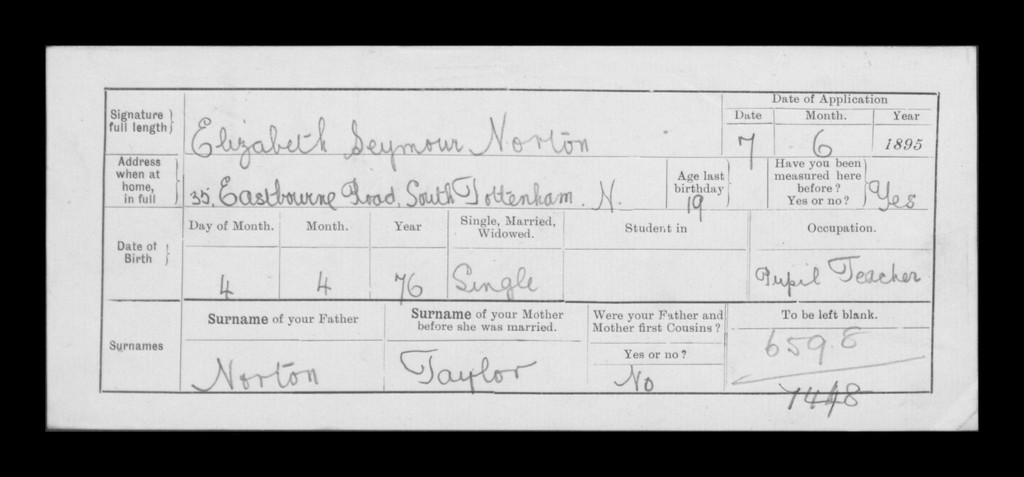 Signature full length} Elizabeth Seymour Norton
Date of Application
Date Month. Year
7 6 1895
Address when at home, in full} 35, Eastbourne Road, South Tottenham. N.
Age last birthday} 19
Have you been measured here before? Yes or no?} Yes
Date of Birth}
Day of Month. Month. Year Single, Married, Widowed. Student in Occupation.
4 4 76 Single Pupil Teacher
Surnames
Surname of your Father Surname of your Mother before she was married. Were your Father and Mother first Cousins? Yes or no? To be left blank.
Norton Taylor No 659.8
7448